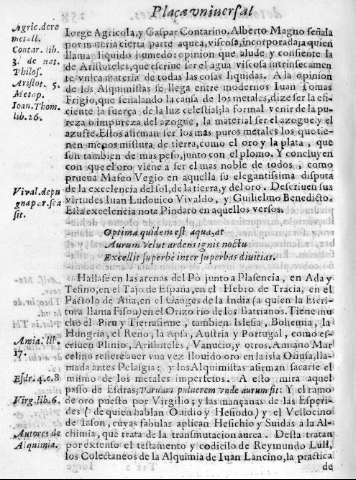 Plaça vniuersal
Agric. de re
metall.
Contar. lib.
3. de
Philos.
Aristot. 5.
Metap.
Ioan. Thom.
lib. 26.
Iorge Agricola, y Gaspar Contarino, Alberto Magno señala
por materia cierta parte aquea, viscosa, incorporada, a quien
llama liquida humedo: opinion que alude y consiente la
de Aristoteles, que
materia de todas las cosas liquidas. A la opinion
de los Alquimistas se llega entre modernos Iuan Tomas
Frigio, que señalando la causa de los metales, dize ser la efi
ciente la fuerça de la luz celestial, la formal venir de la pu-
reza o impureza del azogue, la material ser el azogue, y el
azufre. Ellos afirman ser los mas puros metales los que tie-
nen menos mistura de tierra, como el oro y la plata, que
son tambien de mas peso, junto con el plomo. Y concluyen
con que el oro viene a ser el mas noble de todos, como
prueua Mafeo Vegio en aquella su elegantissima disputa
de la excelencia del sol, de la tierra, y del oro. Descriuen sus
virtudes Iuan Ludouico Viualdo, y Guilielmo Benedicto.
Essa excelencia note Pindaro en aquellos versos.
Optima quidem est aqua, at
Aurum velut ardens ignis noctu
Excellit superbè inter superbas diuitias.
Hallase en las arenas del Pò junto a Plasencia, en Ada y
Tesino, en el Tajo de España, en el Hebro de Tracia, en el
Pactolo de Asia, en el Ganges de la India (a quien la Escri-
tura llama Fison) en el Orizo rio de los Batrianos. Tiene mu
cho el Piru y Tierrafirme, tambien Islefia, Bohemia, la
Hungria, el Reno, la Apia, Austria y Portugal, como es-
criuen Plinio, Aristoteles, Vanucio, y otros. Amiano Mar-
celino refiere auer vna vez llouido oro en la isla
mada antes Pelaigia; y los Alquimistas afirman sacarse el
mismo de los metales imperfetos. A esto mira aquel
passo de Esdras; Paruum puluerem vnde aurum fit: Y el ramo
de oro puesto por Virgilio; y las mançanas de las Esperi-
des (de quien hablan Ouidio y Hesiodo) y el Vellocino
de Iason, cuyas fabulas aplican Hesichio y Suidas a la Al-
chimia, que trata de la transmutacion aurea. Desta tratan
por extenso el testamento y codicilo de Reymundo Lull,
los Colectaneos de la Alquimia de Iuan Lancino, la practica
de
Amia. lib.
17.
Esdr. 4. c. 8.
Virg. lib. 6.
Autores de
Alquimia.